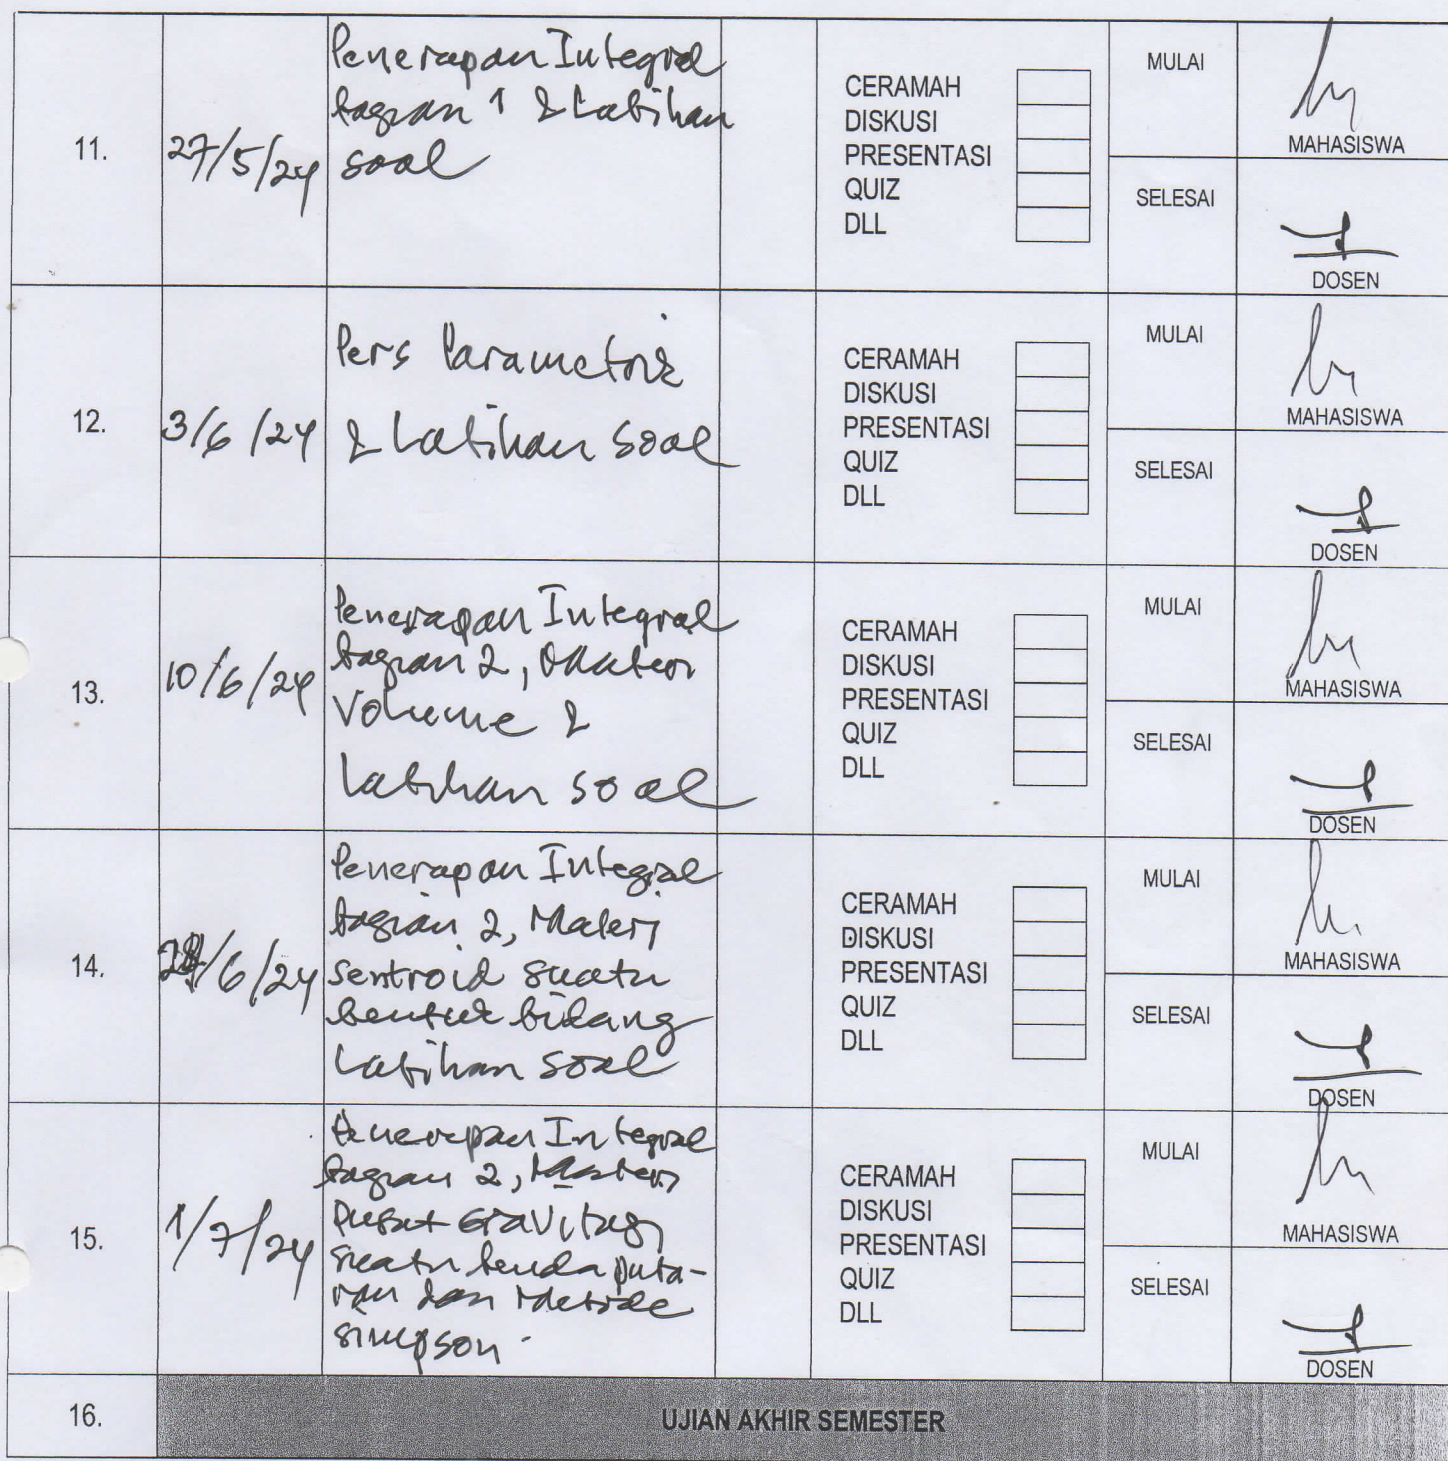 11.
27/5/24
Penerapan Integral
bagian 1 & Latihan
soal
CERAMAH
DISKUSI
PRESENTASI
QUIZ
DLL
MULAI
MAHASISWA
SELESAI
DOSEN
12.
3/6/24
Pers Parametrik
& Latihan soal
CERAMAH
DISKUSI
PRESENTASI
QUIZ
DLL
MULAI
MAHASISWA
SELESAI
DOSEN
13.
10/6/24
Penerapan Integral
bagian 2, Materi
Volume &
Latihan soal
CERAMAH
DISKUSI
PRESENTASI
QUIZ
DLL
MULAI
MAHASISWA
SELESAI
DOSEN
14.
/6/24
Penerapan Integral
bagian 2, Materi
sentroid suatu
bentuk bidang
Latihan soal
CERAMAH
DISKUSI
PRESENTASI
QUIZ
DLL
MULAI
MAHASISWA
SELESAI
DOSEN
15.
1/7/24
Penerapan Integral
bagian 2, Materi
Pusat Gravitasi
suatu benda puta-
ran dan Metode
simpson.
CERAMAH
DISKUSI
PRESENTASI
QUIZ
DLL
MULAI
MAHASISWA
SELESAI
DOSEN
16.
UJIAN AKHIR SEMESTER